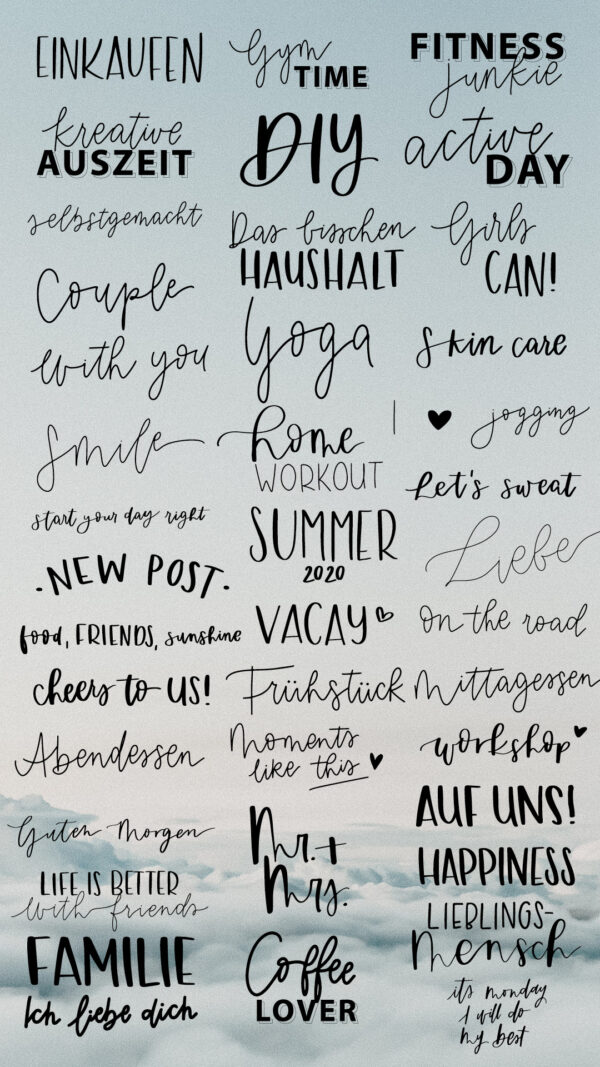 EINKAUFEN
Gym
TIME
FITNESS
junkie
kreative
AUSZEIT
DIY
active
DAY
selbstgemacht
Das bisschen
HAUSHALT
Girls
CAN!
Couple
Yoga
Skin care
with you
Smile
home
WORKOUT
jogging
Let's sweat
start your day right
SUMMER
2020
Liebe
.NEW POST.
food, FRIENDS, sunshine
VACAY
on the road
cheers to US!
Frühstück
Mittagessen
Abendessen
Moments
like this
workshop
AUF UNS!
Guten Morgen
Mr. +
Mrs.
HAPPINESS
LIFE IS BETTER
with friends
LIEBLINGS-
Mensch
FAMILIE
Ich liebe dich
Coffee
LOVER
its monday
I will do
my best